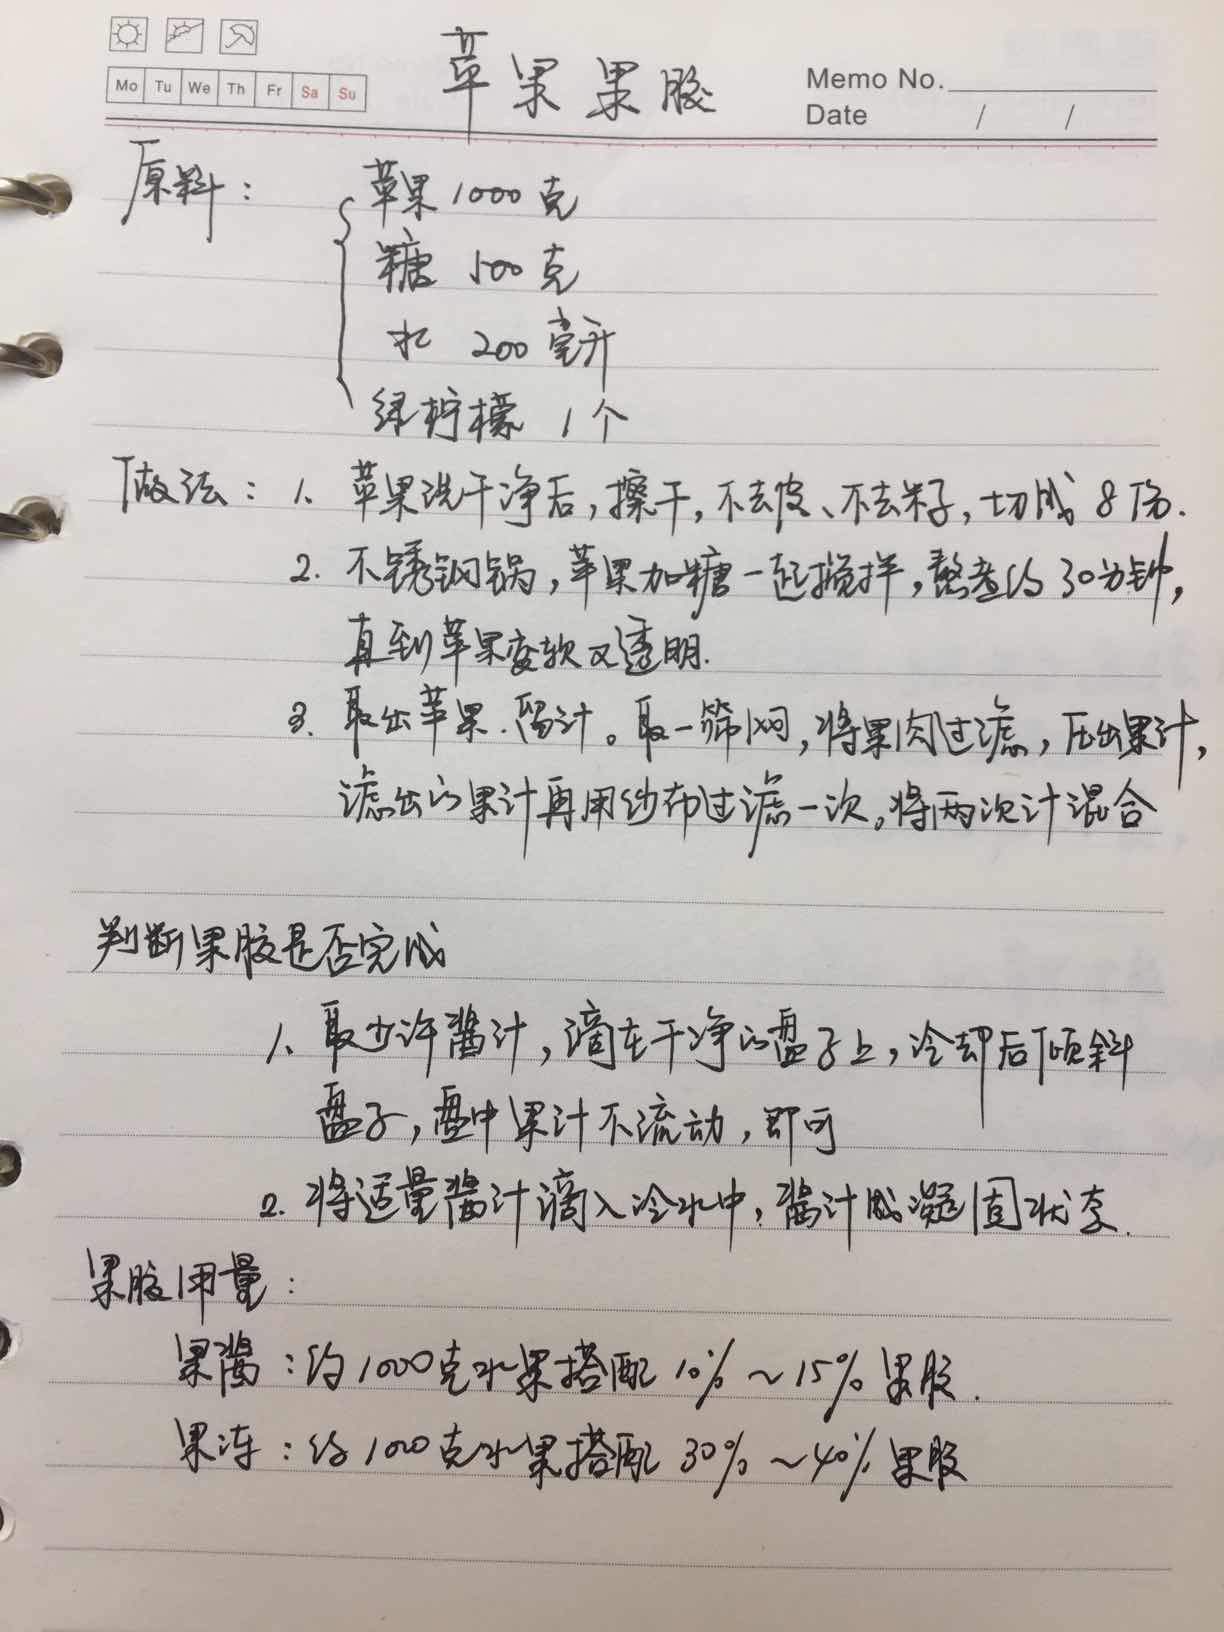 苹果果胶
Mo Tu We Th Fr Sa Su
Memo No.
Date / /
原料：
苹果 1000 克
糖 500 克
水 200 毫升
绿柠檬 1个
做法：1. 苹果洗干净后，擦干，不去皮、不去籽，切成 8 份.
2. 不锈钢锅，苹果加糖一起搅拌，熬煮约 30分钟，
直到苹果变软又透明.
3. 取出苹果.留汁。取一筛网，将果肉过滤，压出果汁，
滤出的果汁再用纱布过滤一次。将两次汁混合
判断果胶是否完成
1. 取少许酱汁，滴在干净的盘子上，冷却后倾斜
盘子，盘中果汁不流动，即可
2. 将适量酱汁滴入冷水中，酱汁成凝固状态.
果胶用量：
果酱：约1000克水果搭配 10%～15% 果胶.
果冻：约1000克水果搭配 30%～40% 果胶